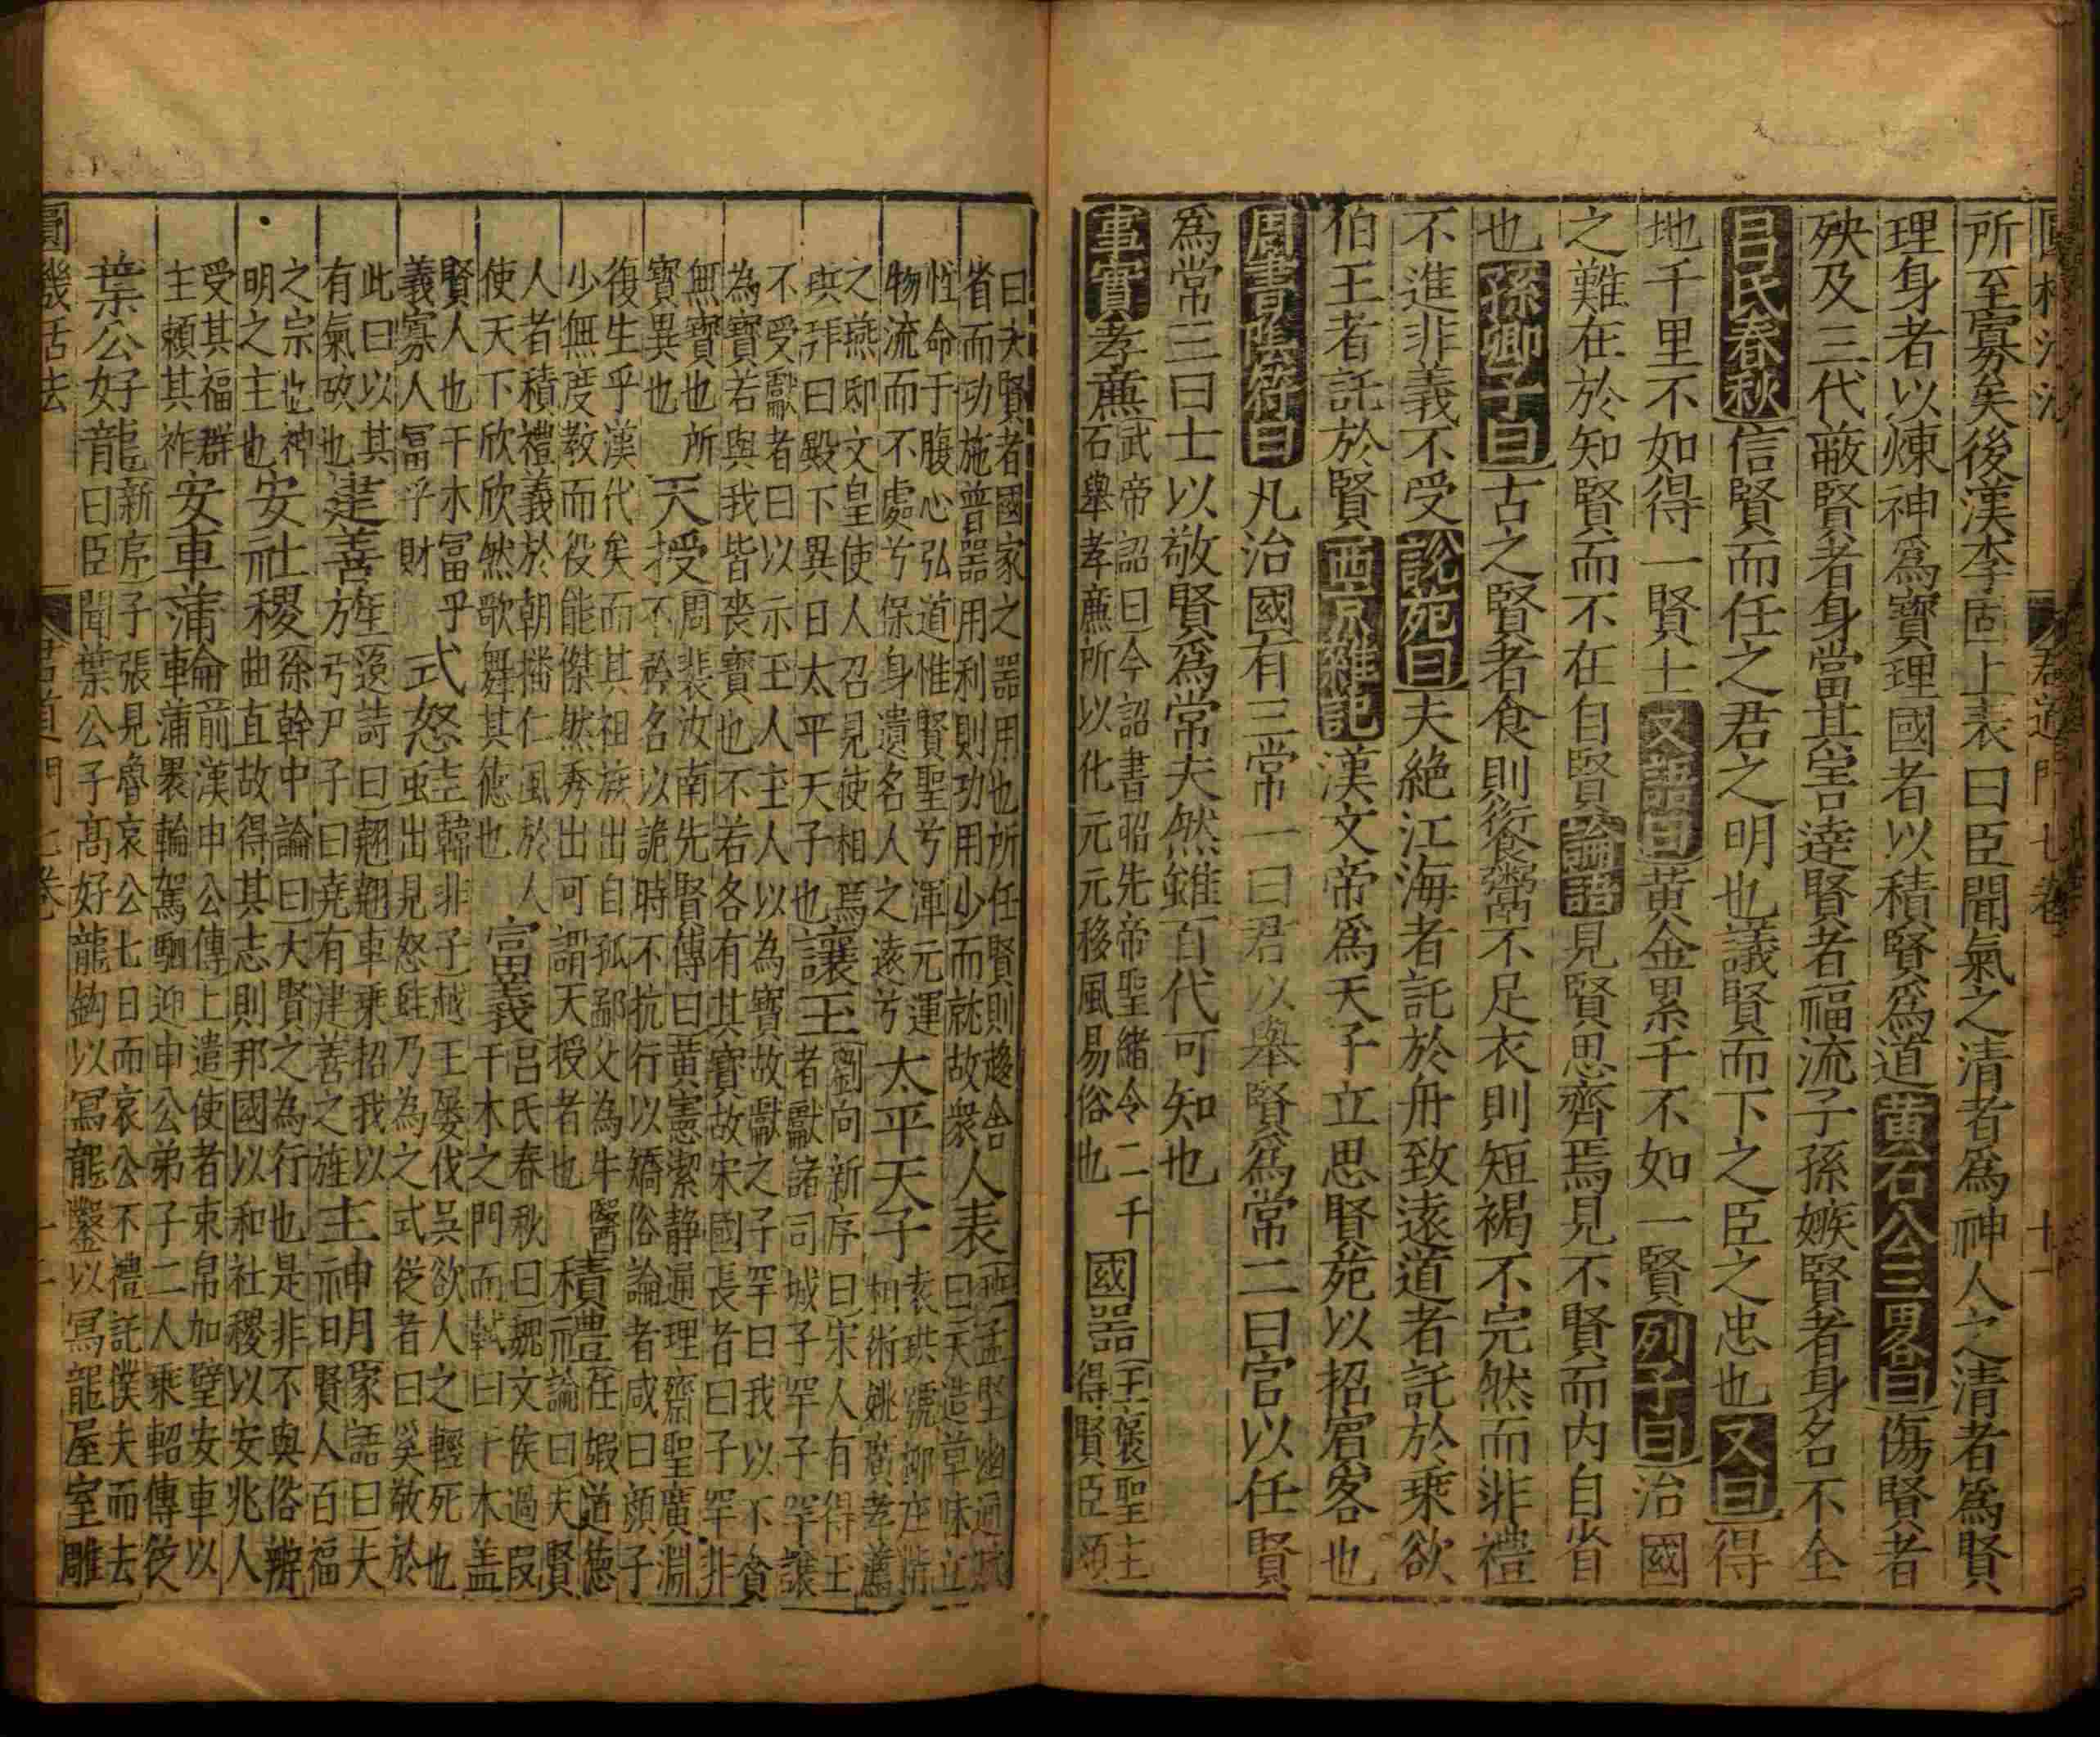 所至寡矣後漢李固上表曰臣聞氣之清者爲神人之清者爲賢
理身者以煉神爲寶理國者以積賢爲道黃石公三畧曰傷賢者
殃及三代蔽賢者身當其害達賢者福流子孫嫉賢者身名不全
吕氏春秋信賢而任之君之明也議賢而下之臣之忠也又曰得
地千里不如得一賢士又語曰黄金累千不如一賢列子曰治國
之難在於知賢而不在自賢論語見賢思齊焉見不賢而内自省
也孫卿子曰古之賢者食則飱鬻不足衣則短褐不完然而非禮
不進非義不受說苑曰夫絶江海者託於舟致遠道者託於乗欲
伯王者託於賢西京雜記漢文帝爲天子立思賢苑以招賔客也
周書陰符曰凡治國有三常一曰君以舉賢爲常二曰官以任賢
爲常三曰士以敬賢爲常夫然雖百代可知也
事實孝廉武帝詔曰今詔書昭先帝聖緒令二千
石舉孝廉所以化元元移風易俗也國器王褒聖主
得賢臣頌
曰夫賢者國家之器用也所任賢則趍舎
省而功施普器用利則功用少而就故衆人表班孟堅幽通賦
曰天造草味立
性命于腹心弘道惟賢聖兮渾元運
物流而不處兮保身遺名人之遠兮太平天子袁珙號柳庄
相術姚廣孝薦
之燕即文皇使人召見使相焉
珙拜曰殿下異日太平天子也讓玉劉向新序曰宋人有得玉
者獻諸司城子罕子罕讓
不受獻者曰以示玉人玉人以為寶故獻之子罕曰我以不貪
為寶若與我皆喪寶也不若各有其寶故宋國長者曰子罕非
無寶也所
寶異也天授周裴汝南先賢傳曰黄憲潔静通理齋聖廣淵
不矜名以詭時不抗行以矯俗論者咸曰顔子
復生乎漢代矣而其祖族出自孤鄙父為牛醫
少無度教而役能傑然秀出可謂天授者也積禮任嘏道德
論曰夫賢
人者積禮義於朝播仁風於人
使天下欣欣然歌舞其德也富義吕氏春秋曰魏文侯過叚
干木之門而軾曰干木盖
賢人也干木富乎
義寡人冨乎財式怒韓非子越王屡伐吳欲人之輕死也
出見怒鼃乃為之式從者曰奚敬於
此曰以其
有氣故也建善旌逸詩曰翹翹車乗招我以
弓尹子曰堯有建善之旌主神明家語曰夫
賢人百福
之宗也神
明之主也安社稷徐幹中論曰大賢之為行也是非不與俗辨
曲直故得其志則邦國以和社稷以安兆人
受其福群
主賴其祚安車蒲輪前漢申公傳上遣使者束帛加璧安車以
車蒲裹輪駕駟迎申公弟子二人乘軺傳從
葉公好龍新序子張見魯哀公七日而哀公不禮託僕夫而去
曰臣聞葉公子高好龍鈎以冩龍鑿以冩龍屋室雕
君道門七卷
十一